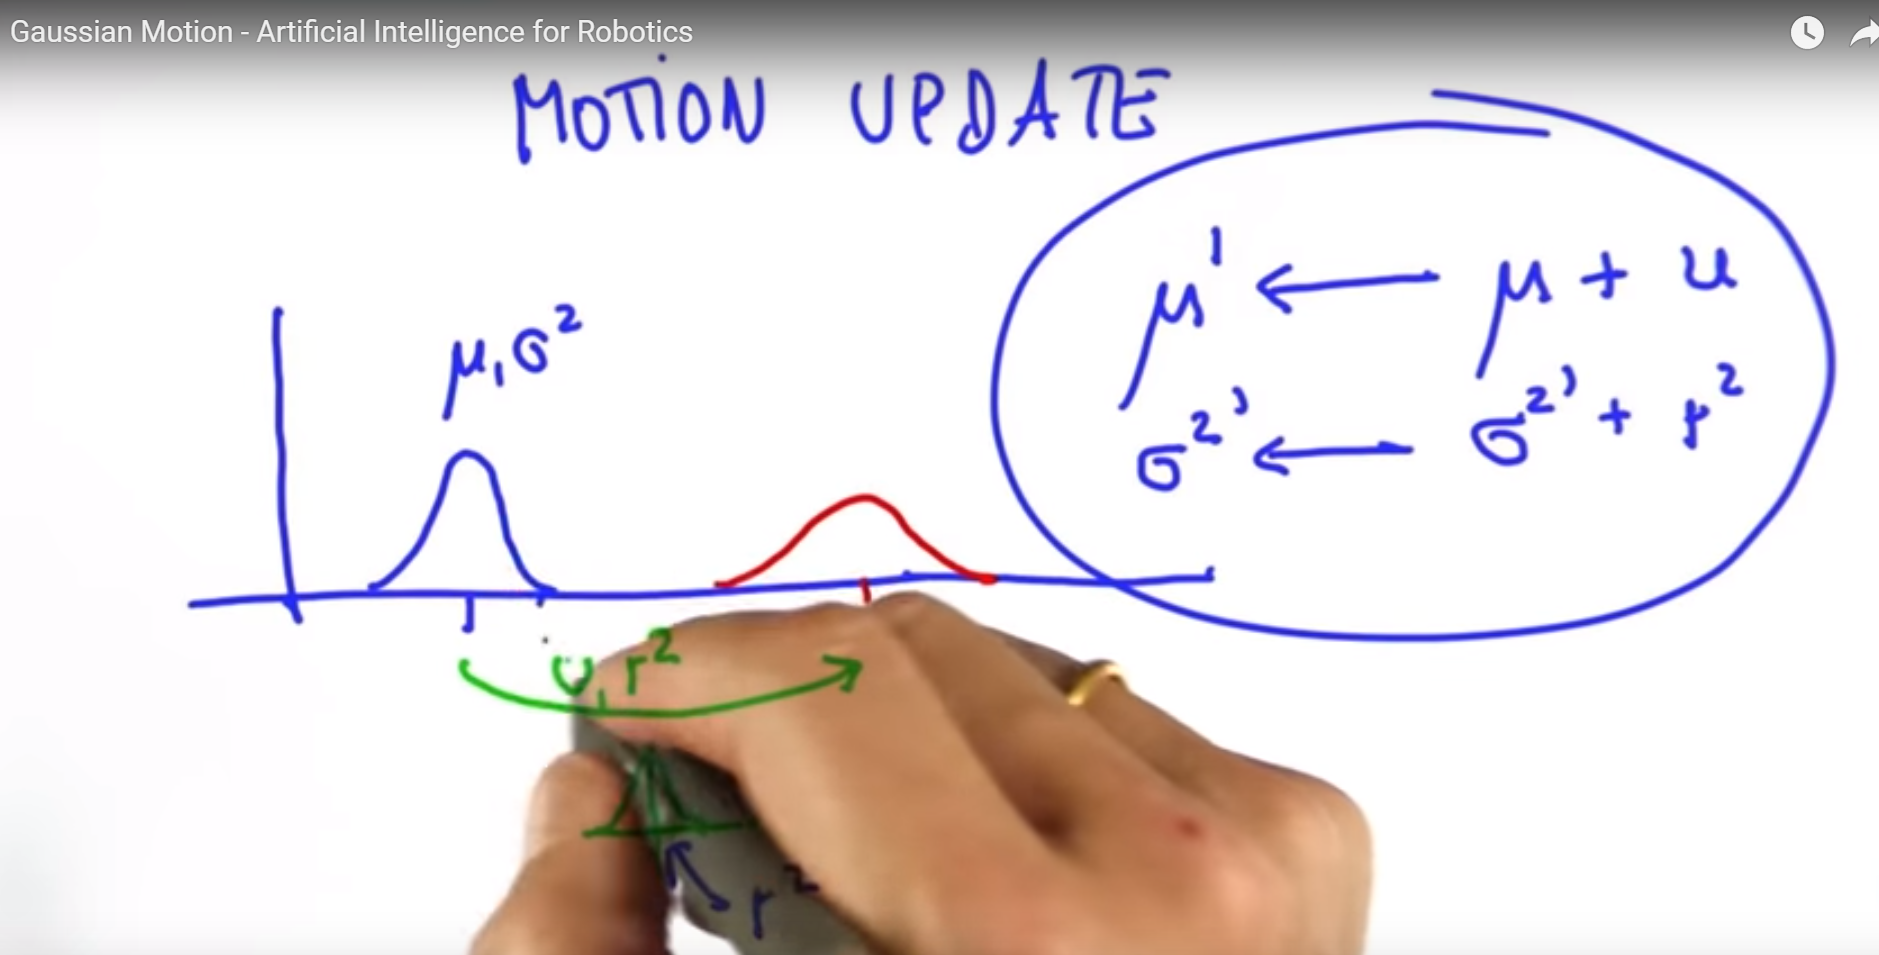 Gaussian Motion - Artificial Intelligence for Robotics
MOTION UPDATE
μ' ← μ + u
μ, σ²
σ²' ← σ²' + r²
u, r²
r²